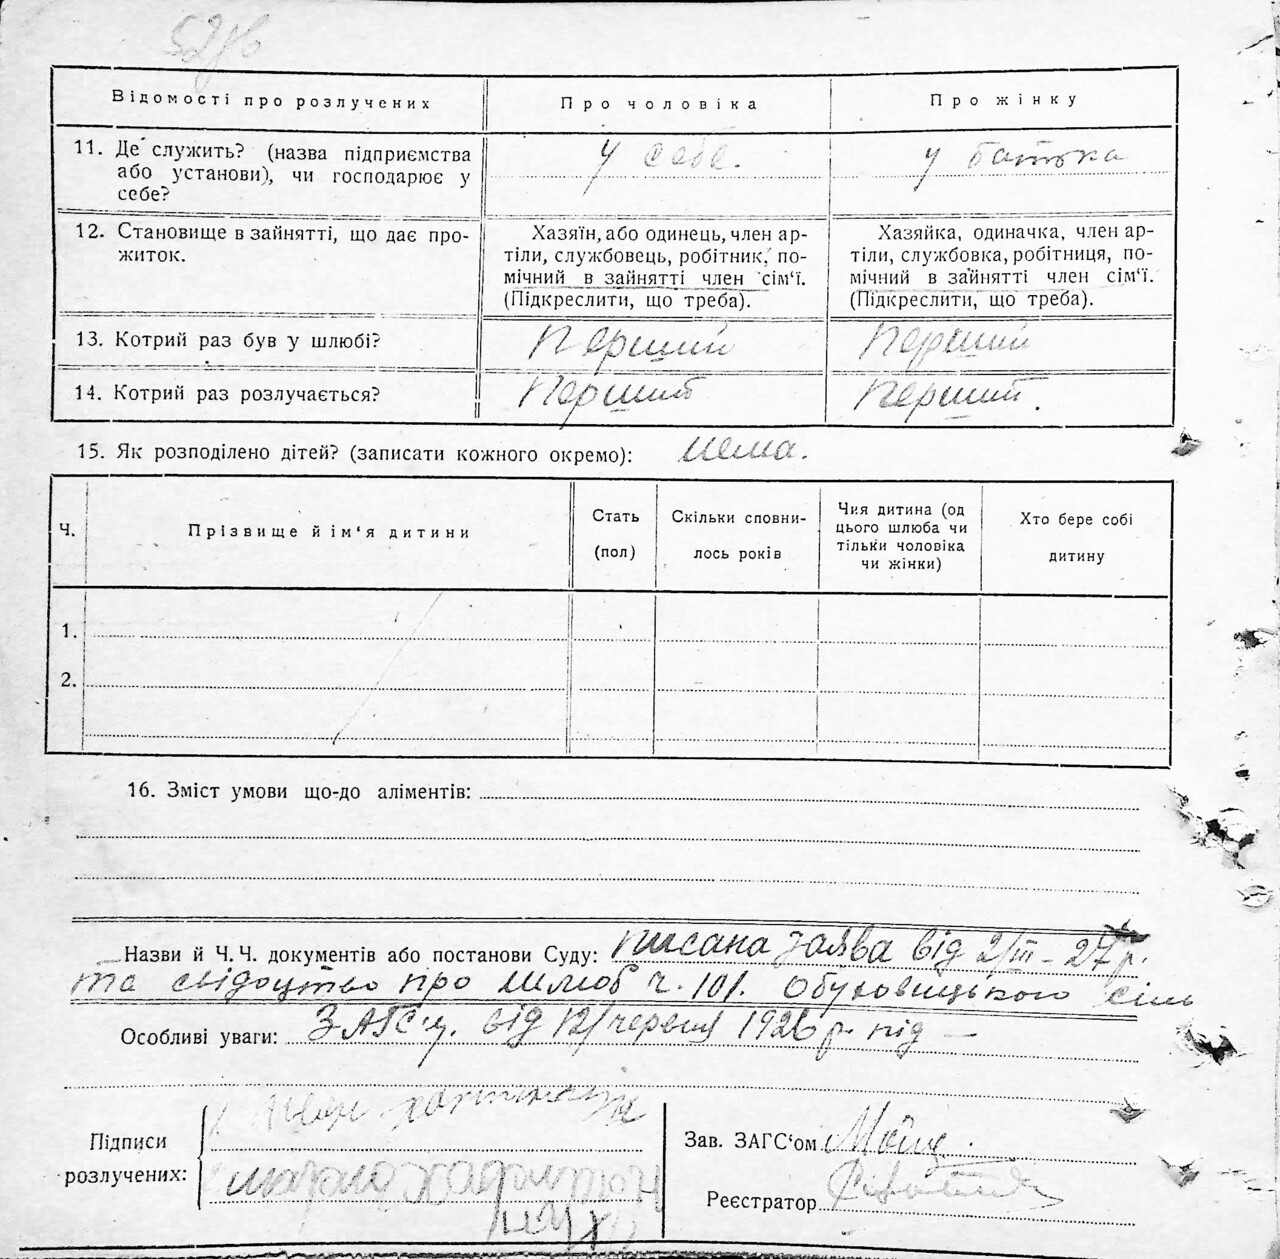 52/в
Відомості про розлучених
Про чоловіка
Про жінку
11. Де служить? (назва підприємства
або установи), чи господарює у
себе?
У себе.
у батька
12. Становище в зайнятті, що дає про-
житок.
Хазяїн, або одинець, член ар-
тіли, службовець, робітник, по-
мічний в зайнятті член сім‘ї.
(Підкреслити, що треба).
Хазяйка, одиначка, член ар-
тіли, службовка, робітниця, по-
мічний в зайнятті член сім‘ї.
(Підкреслити, що треба).
13. Котрий раз був у шлюбі?
Перший
Перший
14. Котрий раз розлучається?
Перший
Перший.
15. Як розподілено дітей? (записати кожного окремо): нема.
Ч.
Прізвище й ім‘я дитини
Стать
(пол)
Скільки сповни-
лось років
Чия дитина (од
цього шлюба чи
тільки чоловіка
чи жінки)
Хто бере собі
дитину
1.
2.
16. Зміст умови що-до аліментів:
Назви й Ч. Ч. документів або постанови Суду: писана заява від 2/III – 27 р.
та свідоцтво про шлюб ч. 101. Обуховицького сіль
Особливі уваги: ЗАГС'у. від 12/червня 1926 р. під —
Підписи
розлучених:
Зав. ЗАГС‘ом
Реєстратор